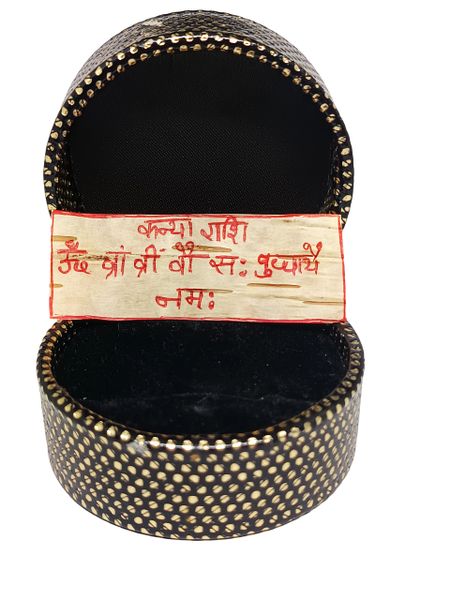 कन्या राशि
ॐ ब्रां ब्रीं ब्रौ सः बुधायै
नमः